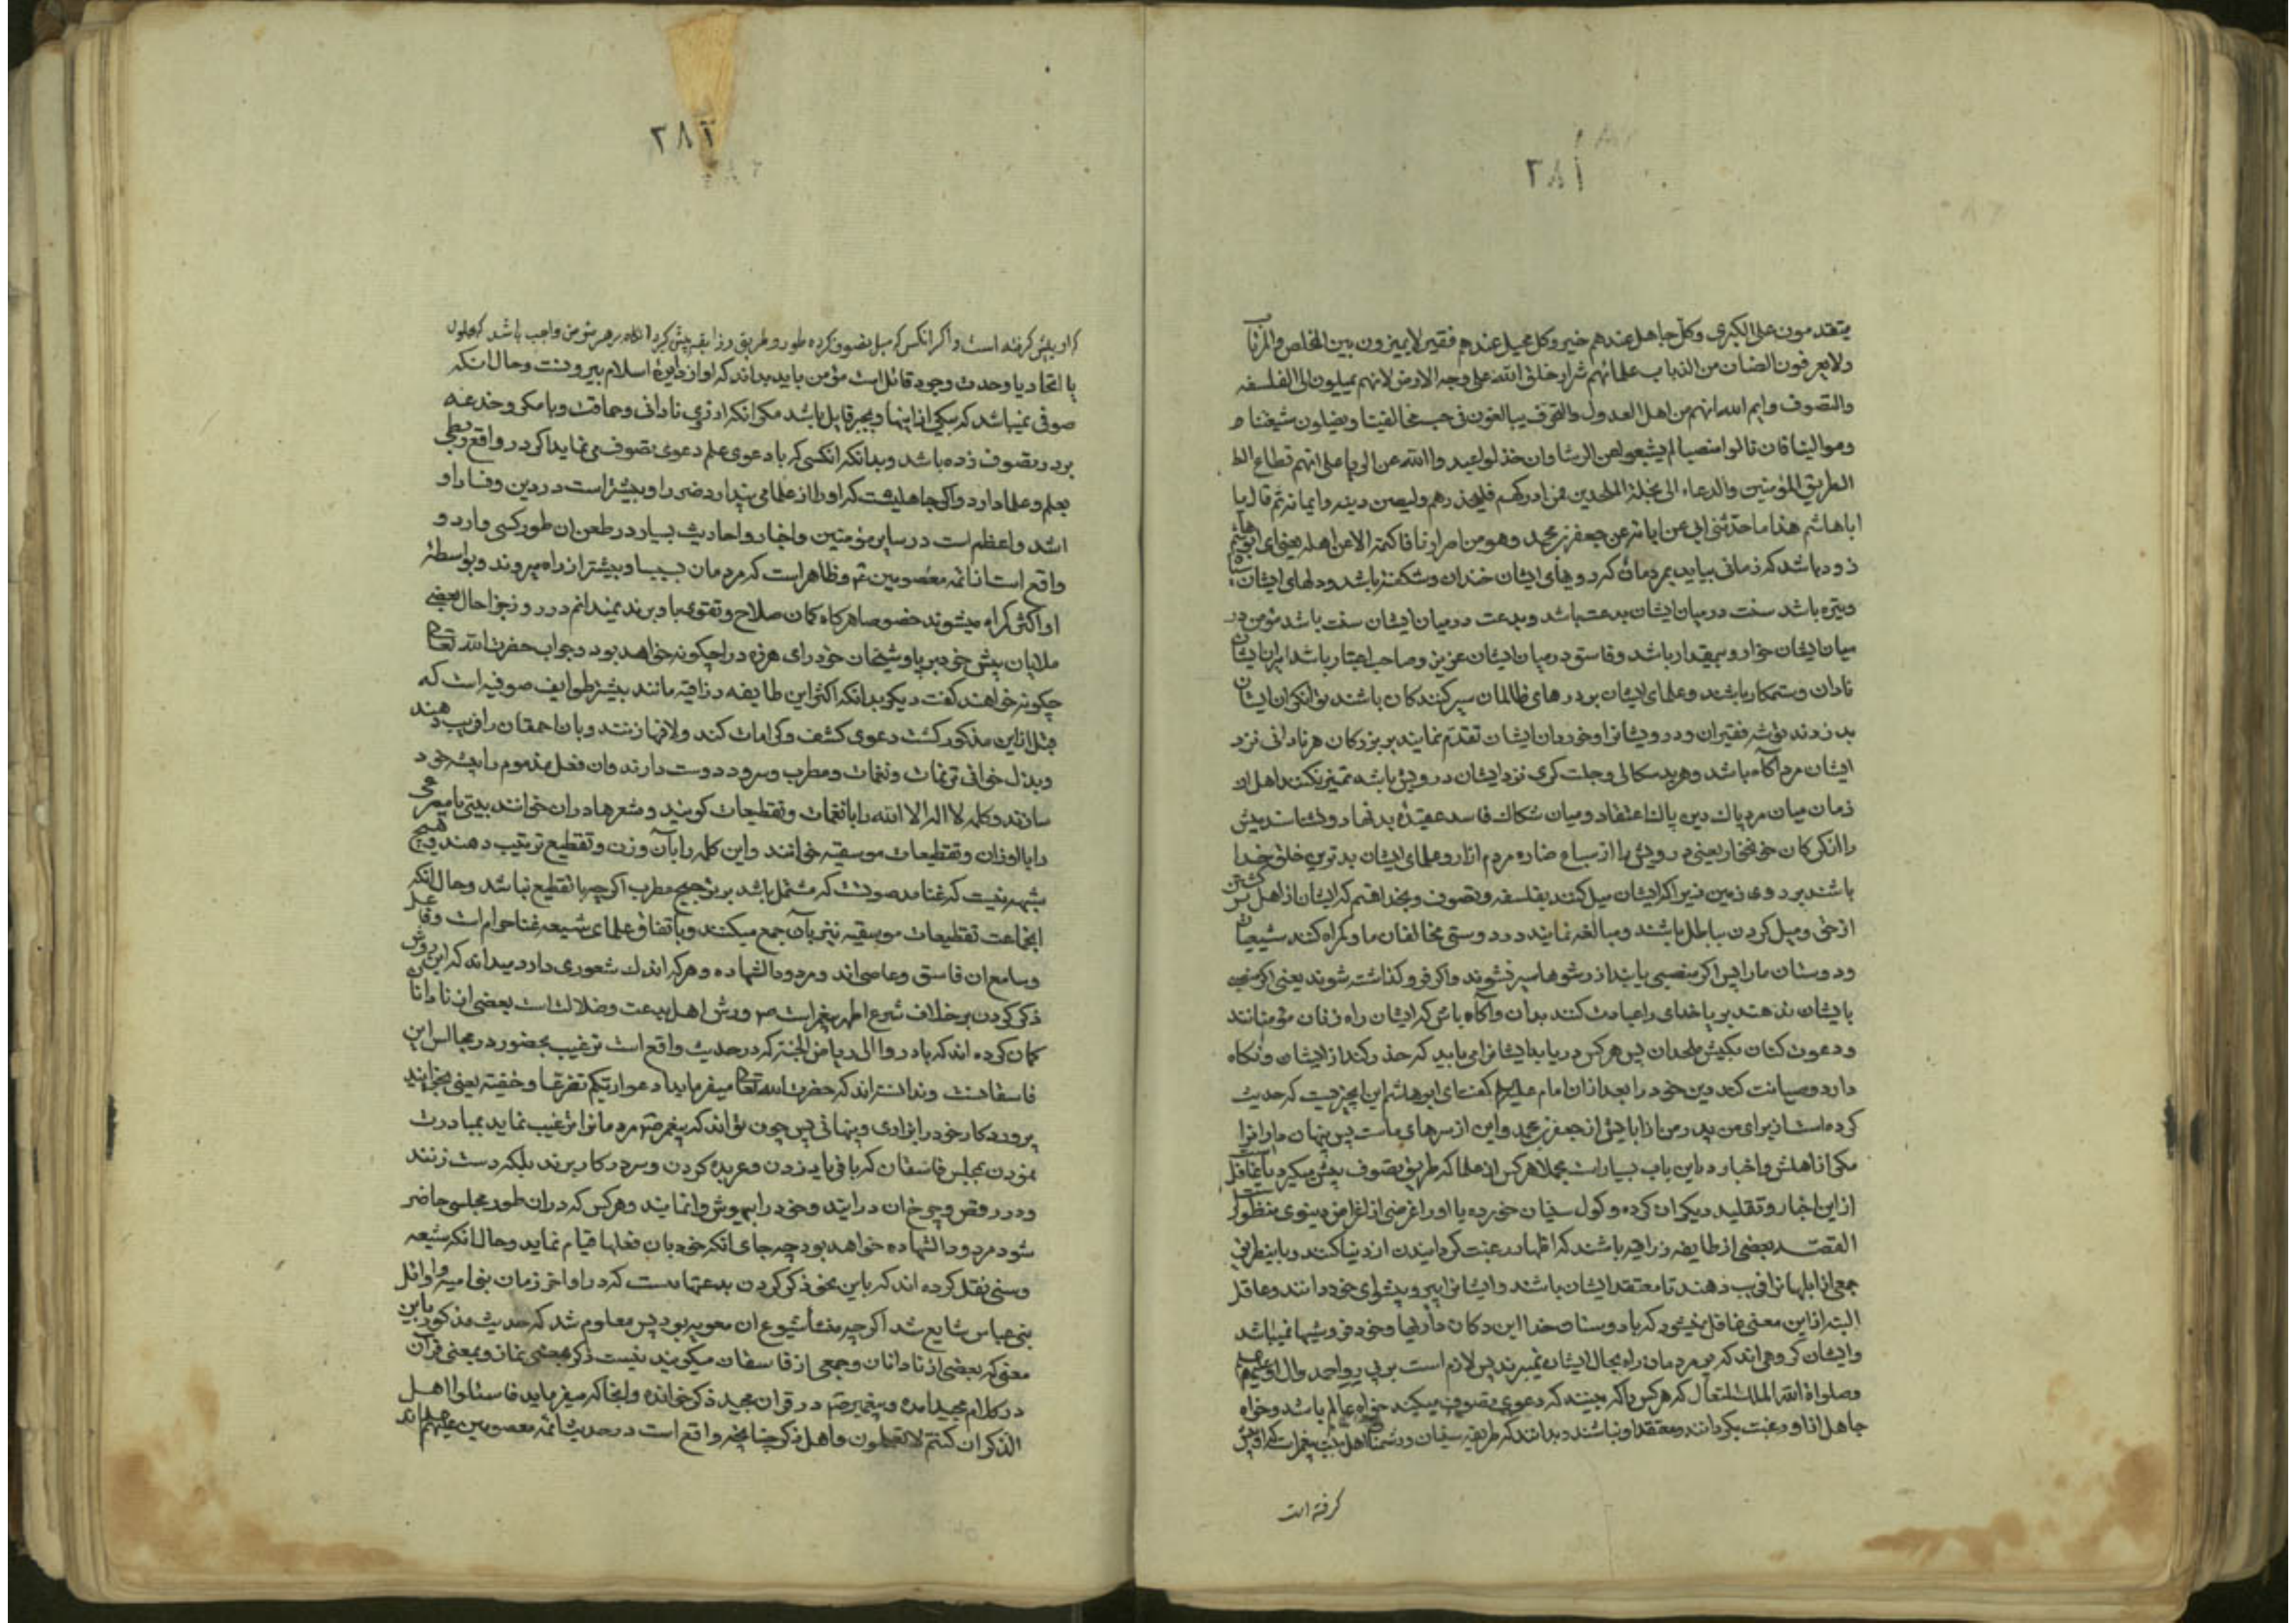 ٢٨١
یتقدمون علی الکبری وکل جاهل عندهم خبیر وکل محیل عندهم فقیر لایمیزون بین المخلص والمرتاب
ولایعرفون الضان من الذباب علمائهم شرار خلق الله علی وجه الارض لانهم یمیلون الی الفلسفه
والتصوف وایم الله انهم من اهل العدول والتحرف یبالغون فی حب مخالفینا ویضلون شیعتنا و
وموالینا فان نالوا منصبا لم یشبعوا عن الرشا وان خذلوا عبدوا الله عن الریا علی انهم قطاع الط
الطریق المؤمنین والدعاء الی نحلة الملحدین فمن ادرکهم فلیحذرهم ولیصن دینه وایمانه ثم قال یا
اباهاشم هذا ما حدثنی ابی عن ابائه عن جعفر بن محمد وهو من اسرارنا فاکتمه الا عن اهله یعنی ای ابوهاشم
زود باشد که زمانی بیاید بمردمان که رویهای ایشان خندان وشکفته باشد ودلهای ایشان سیاه
وتیره باشد سنت در میان ایشان بدعت باشد وبدعت در میان ایشان سنت باشد مؤمن در
میان ایشان خوار وبیمقدار باشد وفاسق در میان ایشان عزیز وصاحب اعتبار باشد امیران ایشان
نادان وستمکار باشند وعلمای ایشان بر درهای ظالمان سیر کنندکان باشند توانکران ایشان
بدزدند توشه فقیران ودرویشانرا وخوردان ایشان تقدم نمایند بر بزرکان هر نادانی نزد
ایشان مرد آکاه باشد وهر بدسکالی وحلت کری نزد ایشان درویش باشد تمییز نکنند اهل ان
زمان میان مرد پاک دین پاک اعتقاد ومیان شکاک فاسد عقیدهٔ بدنهاد ونشناسند میش
را از کرکان خونخوار یعنی درویش را از سباع ضاره مردم ازار وعلمای ایشان بدترین خلق خدا
باشند بر روی زمین زیرا که ایشان میل کنند بفلسفه وتصوف وبخدا قسم که ایشان از اهل برکشتن
از حق ومیل کردن بباطل باشند ومبالغه نمایند در دوستی مخالفان ما وکمراه کنند شیعیان
ودوستان ما را پس اکر منصبی یابند از رشوها سیر نشوند واکر فرو کذاشته شوند یعنی اکر منصب
بایشان ندهند بریا خدای را عبادت کنند بدان وآکاه باش که ایشان راه زنان مؤمنانند
ودعوت کنان بکیش ملحدان پس هر کس دریابد ایشانرا می باید که حذر کند از ایشان ونکاه
دارد وصیانت کند دین خود را بعد از ان امام علیه السلم کفت ای ابوهاشم این چیزیست که حدیث
کرده است از برای من پدر من از ابایش از جعفر بن محمد واین از سرهای ماست پس پنهان دار انرا
مکر از اهلش واخبار در این باب بسیار است مجملا هر کس از علما که طریق تصوف پیش میکیرد یا غافل است
از این اخبار وتقلید دیکران کرده وکول سنیان خورده یا اورا غرضی از اغراض دینوی منظور است
القصه بعضی از طایفه زراقیه باشند که اظهار رغبت کردانیدن از دنیا کنند وباینطریق
جمعی از ابلهانرا فریب دهند تا معتقد ایشان باشند وایشانرا پیر وپیشوای خود دانند وعاقل
البته از این معنی غافل نمیشود که با دوستان خدا این دکان داریها وخود فروشیها نمیباشد
وایشان کروهی اند که مردمان راه بحال ایشان نمیبرند پس لازم است بر پیرو احمد وال او علیهم
وصلواة الله الملک المتعال که هر کس را که بینند که دعوی تصوف میکند خواه عالم باشد وخواه
جاهل از او رغبت بکردانند ومعتقد او نباشند وبدانند که طریقه سنیان ودشمنان اهل بیت پیغمبر است که او پیش
کرفته است
٢٨٢
که او پیش کرفته است واکر انکس که میل بتصوف کرده طور وطریق وزراقیه پیش کیرد انکاه بر هر مؤمن واجب باشد که بحلول
یا اتحاد یا وحدت وجود قائل است مؤمن باید بداند که او از دایرهٔ اسلام بیرونست وحال انکه
صوفی نمیباشد که بیکی از اینها ویجبر قایل باشد مکر انکه از روی نادانی وحماقت ویا مکر وخدعه
بر در تصوف زده باشد وبدانکه انکسی که با دعوی علم دعوی تصوف می نماید اکر در واقع ربطی
بعلم وعلما دارد واکر جاهلیست که اورا از علما می پندارد ضرر او بیشتر است در دین وفساد او
اشد واعظم است در سایر مؤمنین واخبار واحادیث بسیار در طعن ان طور کسی وارد و
واقع است از ائمه معصومین ع وظاهر است که مردمان بسبب او بیشتر از راه میروند وبواسطهٔ
او اکثر کمراه میشوند خصوصا هر کاه کمان صلاح وتقوی باو برند نمیدانم در روز جزا حال بعضی
ملایان پیش خود برپا وشیخان خود رای هرزه درا چکونه خواهد بود وجواب حضرت الله تعالی
چکونه خواهند کفت دیکر بدانکه اکثر این طایفه زراقیه مانند بیشتر طوایف صوفیه است که
قبل از این مذکور کشت دعوی کشف وکرامات کند ولافها زنند وبان احمقان را فریب دهند
وبغزل خوانی ترنمات ونغمات ومطرب وسرود دوست دارند وان فعل مذموم را پیشه خود
سازند وکلمه لا اله الا الله را با نغمات وتقطیعات کویند وشعرها دران خوانند بیتی یا مصرعی
را با اوزان وتقطیعات موسقیه خوانند واین کلمه را بآن وزن وتقطیع ترتیب دهند وهیچ
شبهه نیست که غنا مد صوتست که مشتمل باشد بر ترجیع مطرب اکرچه با تقطیع نباشد وحال انکه
اینجماعت تقطیعات موسقیه نیز بآن جمع میکنند وباتفاق علمای شیعه غنا حرام است وفاعل
وسامع ان فاسق وعاصی اند ومردود الشهاده وهر که اندک شعوری دارد میداند که این روش
ذکر کردن بر خلاف شرع اطهر پیغمبر است ص وروش اهل بدعت وضلالت است بعضی از نادانان
کمان کرده اند که بادروا الی ریاض الجنة که در حدیث واقع است ترغیب بحضور در مجالس این
فاسقانست وندانسته اند که حضرت الله تعالی میفرماید ادعوا ربکم تضرعا وخفیة یعنی بخوانید
پروردکار خود را بزاری وپنهانی پس چون تواند که پیغمبر ص مردمانرا ترغیب نماید بمبادرت
نمودن بمجلس فاسقان که بافریاد زدن وعربده کردن وسرود کار برند بلکه دست زنند
ودر رقص وچرخ زدن درایند وخود را بیهوش وانمایند وهر کس که دران طور مجلسی حاضر
شود مردود الشهاده خواهد بود چه جای انکه خود بان فعلها قیام نماید وحال انکه شیعه
وسنی نقل کرده اند که باین نحو ذکر کردن بدعتهاست که در اواخر زمان بنی امیه واوائل
بنی عباس شایع شد اکرچه منشأ شیوع ان معویه بود پس معلوم شد که حدیث مذکور باین
معنی که بعضی از نادانان وجمعی از فاسقان میکویند نیست ذکر بمعنی نماز وبمعنی قرآن
در کلام مجید امده وپیغمبر ص در قران مجید ذکر خوانده وانجا که میفرماید فاسئلوا اهل
الذکر ان کنتم لا تعلمون واهل ذکر چنانچه واقع است در حدیث ائمه معصومین علیهم السلم اند